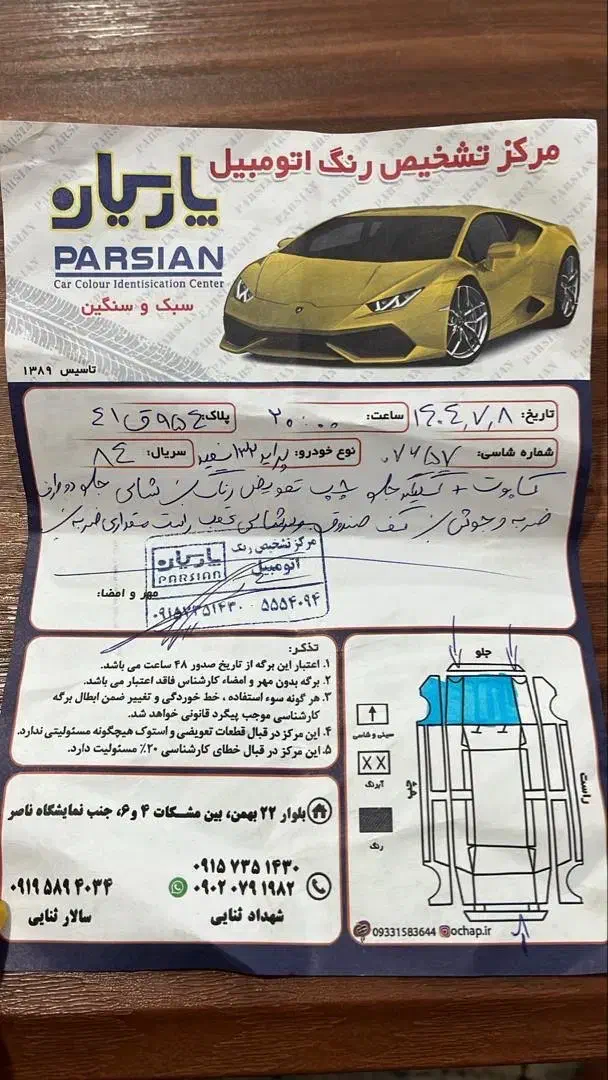 مرکز تشخیص رنگ اتومبیل
پارسیان
PARSIAN
Car Colour Identisication Center
سبک و سنگین
تاسیس ۱۳۸۹
تاریخ: ۱۴۰۴,۷,۸ ساعت: ۲۰:۰۰ پلاک: ۹۵۴ ق ۴۱
شماره شاسی: نوع خودرو: پراید ۱۳۲ سفید سریال: ۸۴
کاپوت + گلگیر جلو چپ تعویض رنگ شاسی جلو دو طرف
ضربه و جوش کف صندوق عقب راست مقداری ضربه
مرکز تشخیص رنگ
اتومبیل
پارسیان
PARSIAN
۰۹۱۵۷۳۵۱۴۳۰ ۵۵۵۴۰۹۴
مهر و امضا:
تذکر:
۱. اعتبار این برگه از تاریخ صدور ۴۸ ساعت می باشد.
۲. برگه بدون مهر و امضاء کارشناس فاقد اعتبار می باشد.
۳. هر گونه سوء استفاده ، خط خوردگی و تغییر ضمن ابطال برگه
کارشناسی موجب پیگرد قانونی خواهد شد.
۴. این مرکز در قبال قطعات تعویضی و استوک هیچگونه مسئولیتی ندارد.
۵. این مرکز در قبال خطای کارشناسی ۲۰٪ مسئولیت دارد.
جلو
سینی و شاسی
XX
آبرنگ
رنگ
چپ
راست
بلوار ۲۲ بهمن، بین مشکات ۴ و ۶، جنب نمایشگاه ناصر
۰۹۱۵ ۷۳۵ ۱۴۳۰
۰۹۰۲ ۰۷۹ ۱۹۸۲
شهداد ثنایی
۰۹۱۹ ۵۸۹ ۴۰۳۴
سالار ثنایی
09331583644 ochap.ir